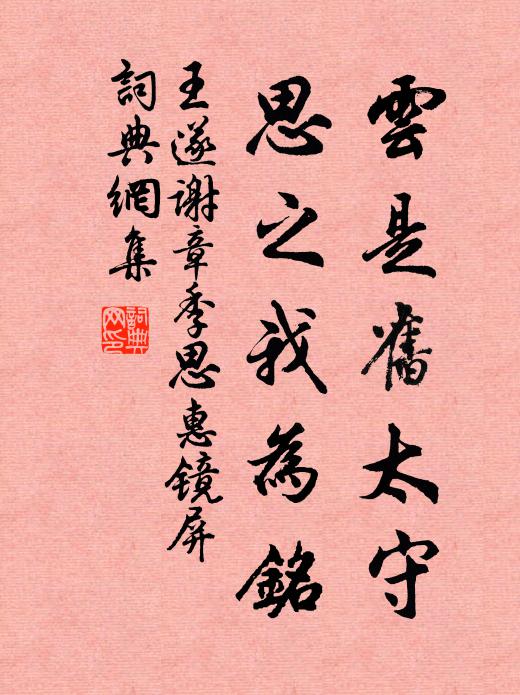 雲是舊太守
思之我為銘
王遂謝章季思惠鏡屏
詞典網集
詞典網印